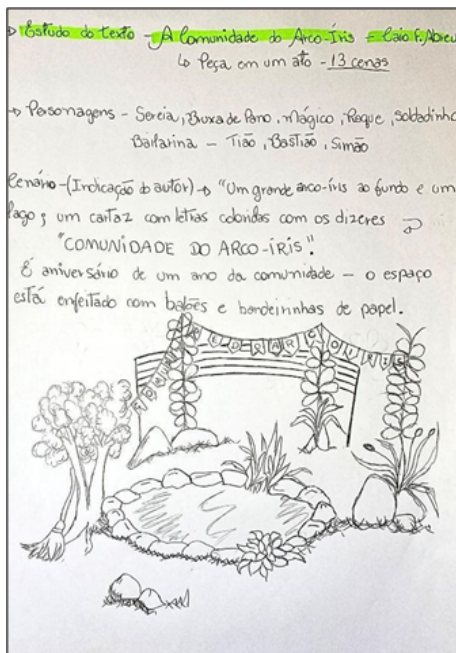 → Estudo do texto - A Comunidade do Arco-Íris = Caio F. Abreu
↳ Peça em um ato - 13 cenas
→ Personagens - Sereia, Bruxa de Pano, Mágico, Roque, soldadinho
Bailarina - Tião, Bastião, Simão
Cenário - (Indicação do autor) → "Um grande arco-íris ao fundo e um
lago; um cartaz com letras coloridas com os dizeres
"COMUNIDADE DO ARCO-ÍRIS".
É aniversário de um ano da comunidade - o espaço
está enfeitado com balões e bandeirinhas de papel.